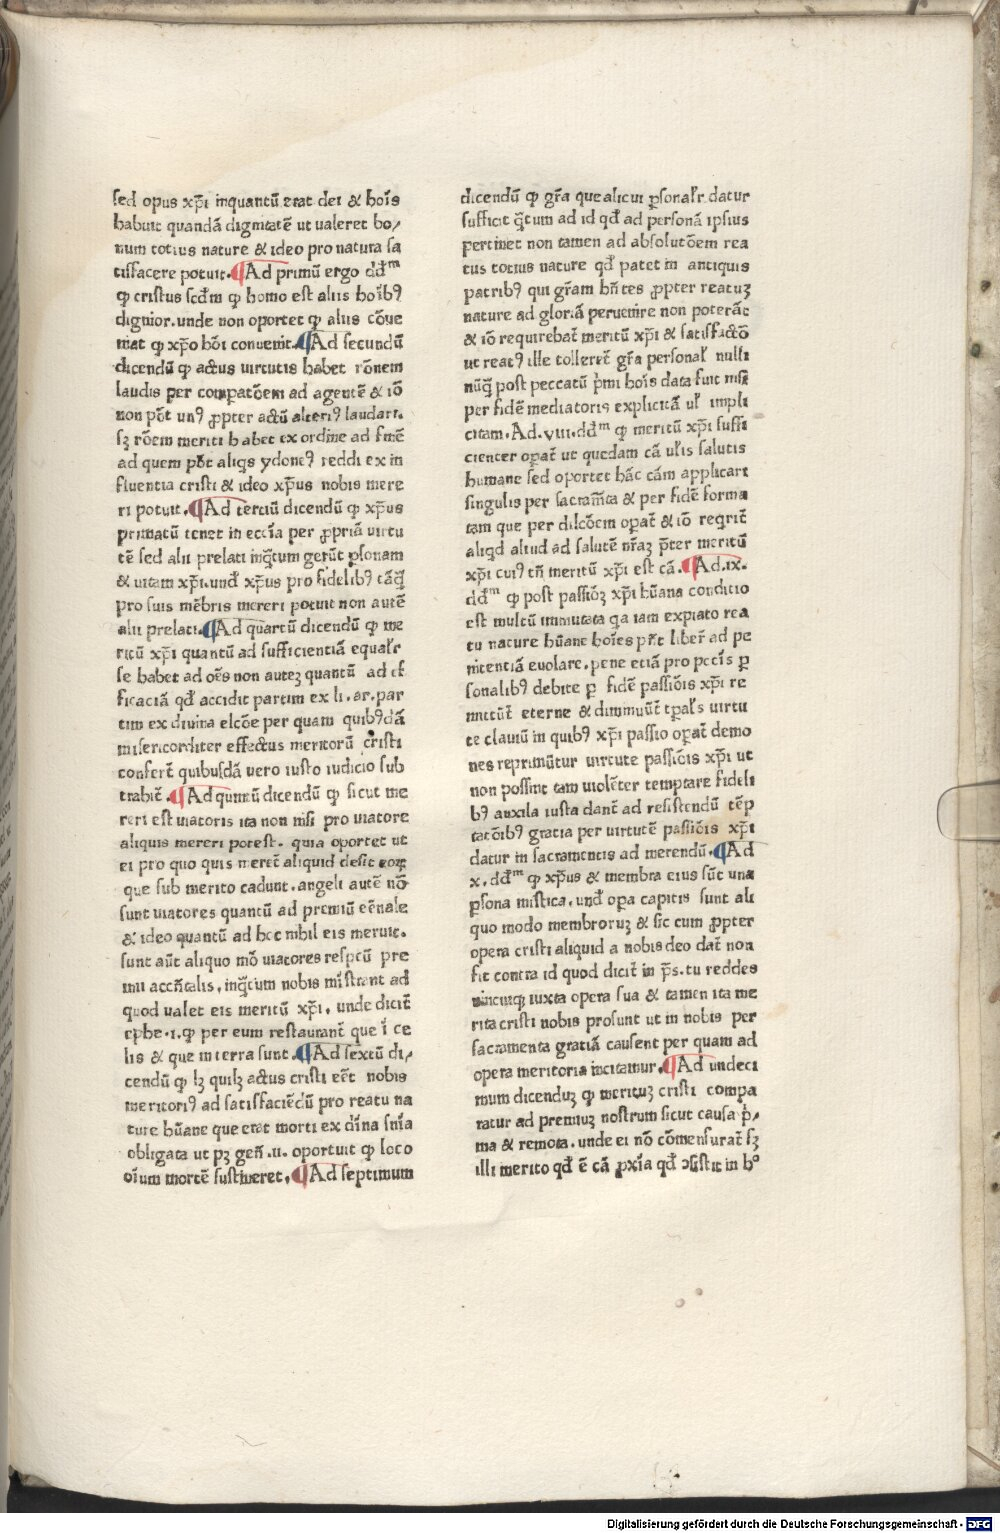 sed opus xp̄i inquantū erat dei & hoīs
habuit quandā dignitatē ut ualeret bo/
num totius nature & ideo pro natura sa
tisfacere potuit. ¶Ad primū ergo dd̄ᵐ
ꝙ cristus scd̄m ꝙ homo est aliis hoīb⁹
dignior. unde non oportet ꝙ aliis cōue
niat ꝙ xp̄o hōi conuenit. ¶Ad secundū
dicendū ꝙ actus uirtutis habet rōnem
laudis per compatōem ad agentē & iō
non pōt un⁹ ꝓpter actū alteri⁹ laudari.
sꝫ rōem meriti habet ex ordine ad finē
ad quem pōt aliqs ydone⁹ reddi ex in
fluentia cristi & ideo xp̄us nobis mere
ri potuit. ¶Ad tertiū dicendū ꝙ xp̄us
primatū tenet in eccīa per ꝓpriā uirtu
tē sed alii prelati inq̄tum gerūt ꝑsonam
& uitam xp̄i. und̄ xp̄us pro fidelib⁹ tāq̄
pro suis mēbris mereri potuit non autē
alii prelati. ¶Ad quartū dicendū ꝙ me
ritū xp̄i quantū ad sufficientiā equaꝉr
se habet ad oēs non auteꝫ quantū ad ef
ficaciā qd̄ accidit partim ex li. ar. par
tim ex diuina elcōe per quam quib⁹dā
misericorditer effectus meritorū cristi
confert̄ quibusdā uero iusto iudicio sub
trahit̄. ¶Ad quintū dicendū ꝙ sicut me
reri est uiatoris ita non nisi pro uiatore
aliquis mereri potest. quia oportet ut
ei pro quo quis meret̄ aliquid desit eoꝝ
que sub merito cadunt. angeli autē nō
sunt uiatores quantū ad premiū eēnale
& ideo quantū ad hoc nihil eis meruit.
sunt aūt aliquo mō uiatores respctū pre
mii accn̄talis, inq̄tum nobis mīstrant ad
quod ualet eis meritū xp̄i. unde dicit̄
ephe. 1. ꝙ per eum restaurant̄ que ī ce
lis & que in terra sunt. ¶Ad sextū di/
cendū ꝙ lꝫ quilꝫ actus cristi eēt nobis
meritori⁹ ad satisfaciēdū pro reatu na
ture hūane que erat morti ex dīna snīa
obligata ut pꝫ gen̄. ii. oportuit ꝙ loco
oīum mortē sustineret. ¶Ad septimum
dicendū ꝙ grā que alicui ꝑsonaꝉr datur
sufficit q̄tum ad id qd̄ ad personā ipsius
pertinet non tamen ad absolutōem rea
tus totius nature qd̄ patet in antiquis
patrib⁹ qui grām hn̄tes ꝓpter reatuꝫ
nature ad gloriā peruenire non poterāt
& iō requirebat̄ meritū xp̄i & satisfactō
ut reat⁹ ille tolleret̄ grā personaꝉ nulli
nūq̄ post peccatū p̄mi hoīs data fuit nisi
per fidē mediatoris explicitā uꝉ impli
citam. Ad. viii. dd̄ᵐ ꝙ meritū xp̄i suffi
cienter opat̄ ut quedam cā uꝉis salutis
humane sed oportet hāc cām applicari
singulis per sacram̄ta & per fidē forma
tam que per dilcōem opat̄ & iō reqrit̄
aliqd aliud ad salutē nr̄aꝫ p̄ter meritū
xp̄i cui⁹ tn̄ meritū xp̄i est cā. ¶Ad. ix.
dd̄ᵐ ꝙ post passiōꝫ xp̄i hūana conditio
est multū immutata qa iam expiato rea
tu nature hūane hoīes pn̄t liber̄ ad pe
nitentiā euolare. pene etiā pro pccīs ꝑ
sonalib⁹ debite ꝑ fidē passiōis xp̄i re
mittūt̄ eterne & diminuūt̄ tpaꝉs uirtu
te clauiū in quib⁹ xp̄i passio opat̄ demo
nes reprimūtur uirtute passiōis xp̄i ut
non possint tam uiolēter temptare fideli
b⁹ auxila iusta dant̄ ad resistendū tēp
tatōib⁹ gratia per uirtutē passiōis xp̄i
datur in sacramentis ad merendū. ¶Ad
x. dd̄ᵐ ꝙ xp̄us & membra eius sūt una
ꝑsona mistica, und̄ opa capitis sunt ali
quo modo membroruꝫ & sic cum ꝓpter
opera cristi aliquid a nobis deo dat̄ non
fit contra id quod dicit̄ in ps̄. tu reddes
unicuiqꝫ iuxta opera sua & tamen ita me
rita cristi nobis prosunt ut in nobis per
sacramenta gratiā causent per quam ad
opera meritoria incitamur. ¶Ad undeci
mum dicenduꝫ ꝙ merituꝫ cristi compa
ratur ad premiuꝫ nostrum sicut causa p̄/
ma & remota. unde ei nō cōmensurat̄ sꝫ
illi merito qd̄ ē cā ꝓxīa qd̄ ꝯsistit in hº
Digitalisierung gefördert durch die Deutsche Forschungsgemeinschaft - DFG